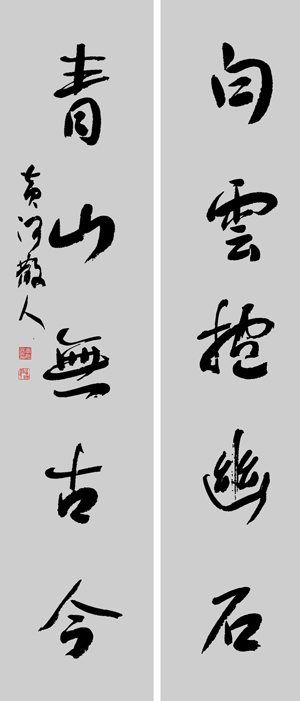 白雲抱幽石
青山無古今
黄河散人